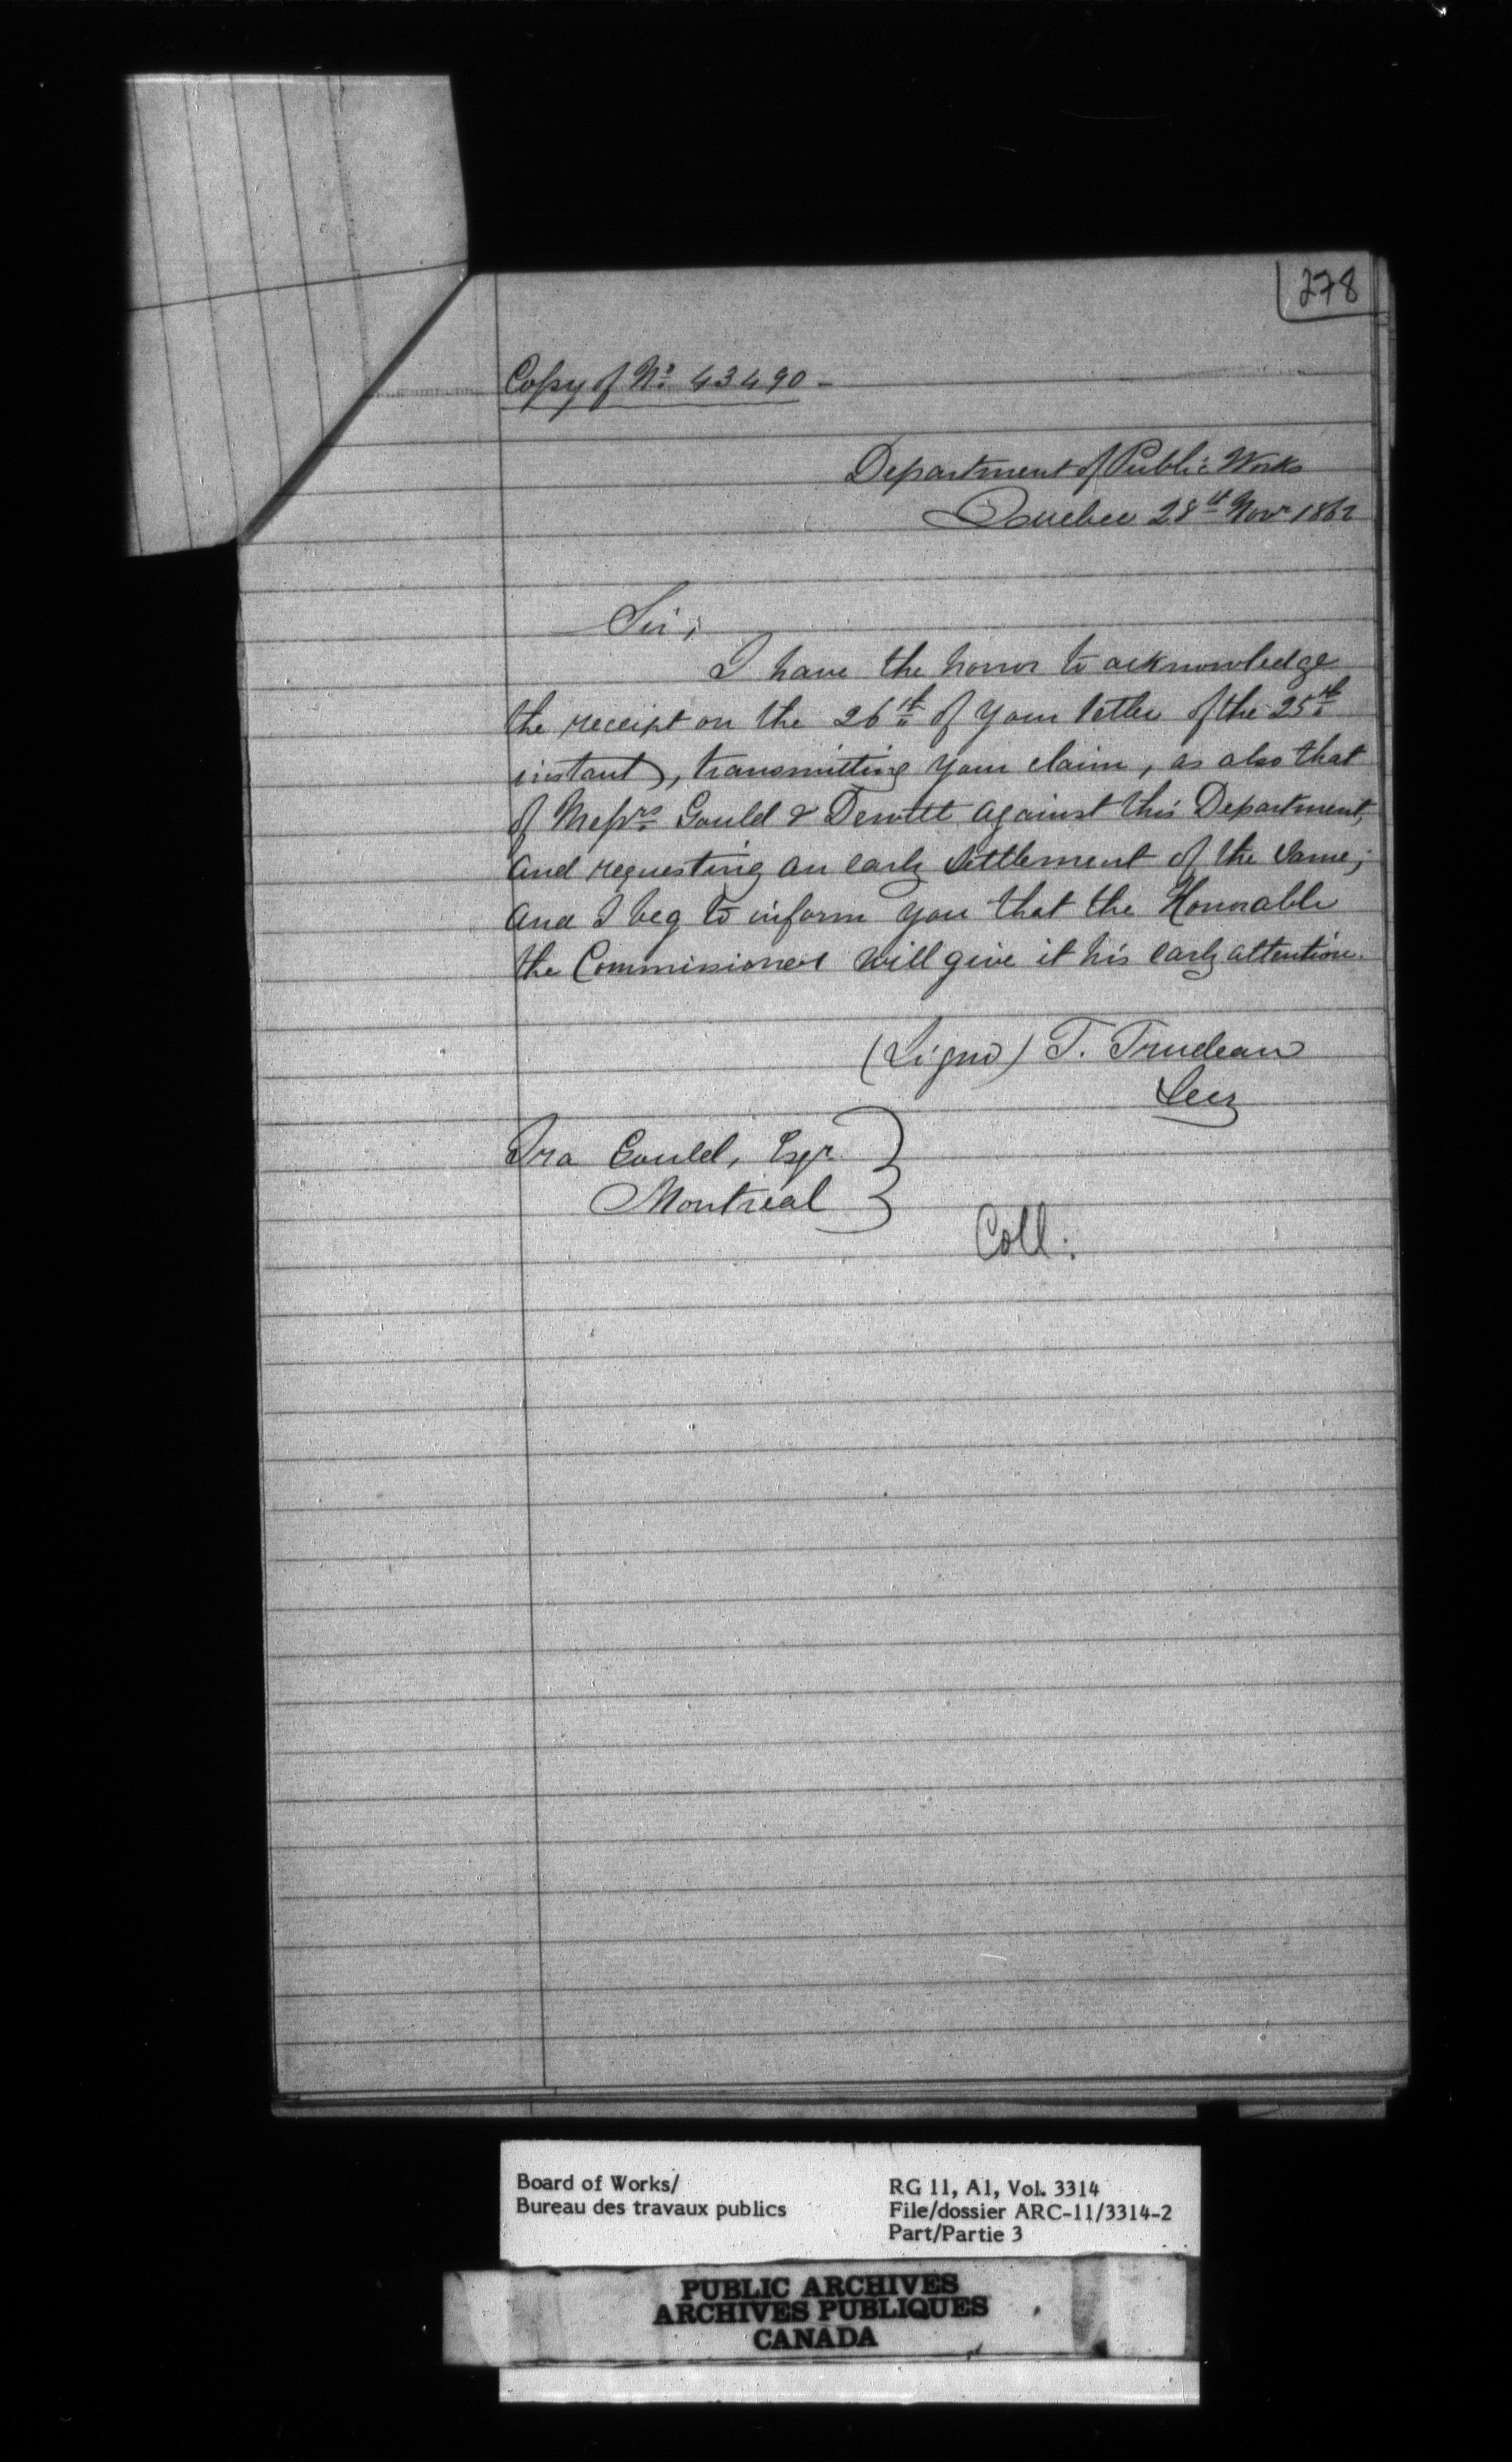 278
Copy of No. 43490 -
Department of Public Works
Quebec 28th Novr 1862
Sir,
I have the honor to acknowledge
the receipt on the 26th of your letter of the 25th
instant, transmitting your claim, as also that
of Messrs Gould & Dewitt against this Department,
and requesting an early settlement of the same;
and I beg to inform you that the Honorable
the Commissioner will give it his early attention.
(Signd) T. Trudeau
Secy
Ira Gould, Esqr.
Montreal
Coll:
Board of Works/
Bureau des travaux publics
RG 11, A1, Vol. 3314
File/dossier ARC-11/3314-2
Part/Partie 3
PUBLIC ARCHIVES
ARCHIVES PUBLIQUES
CANADA